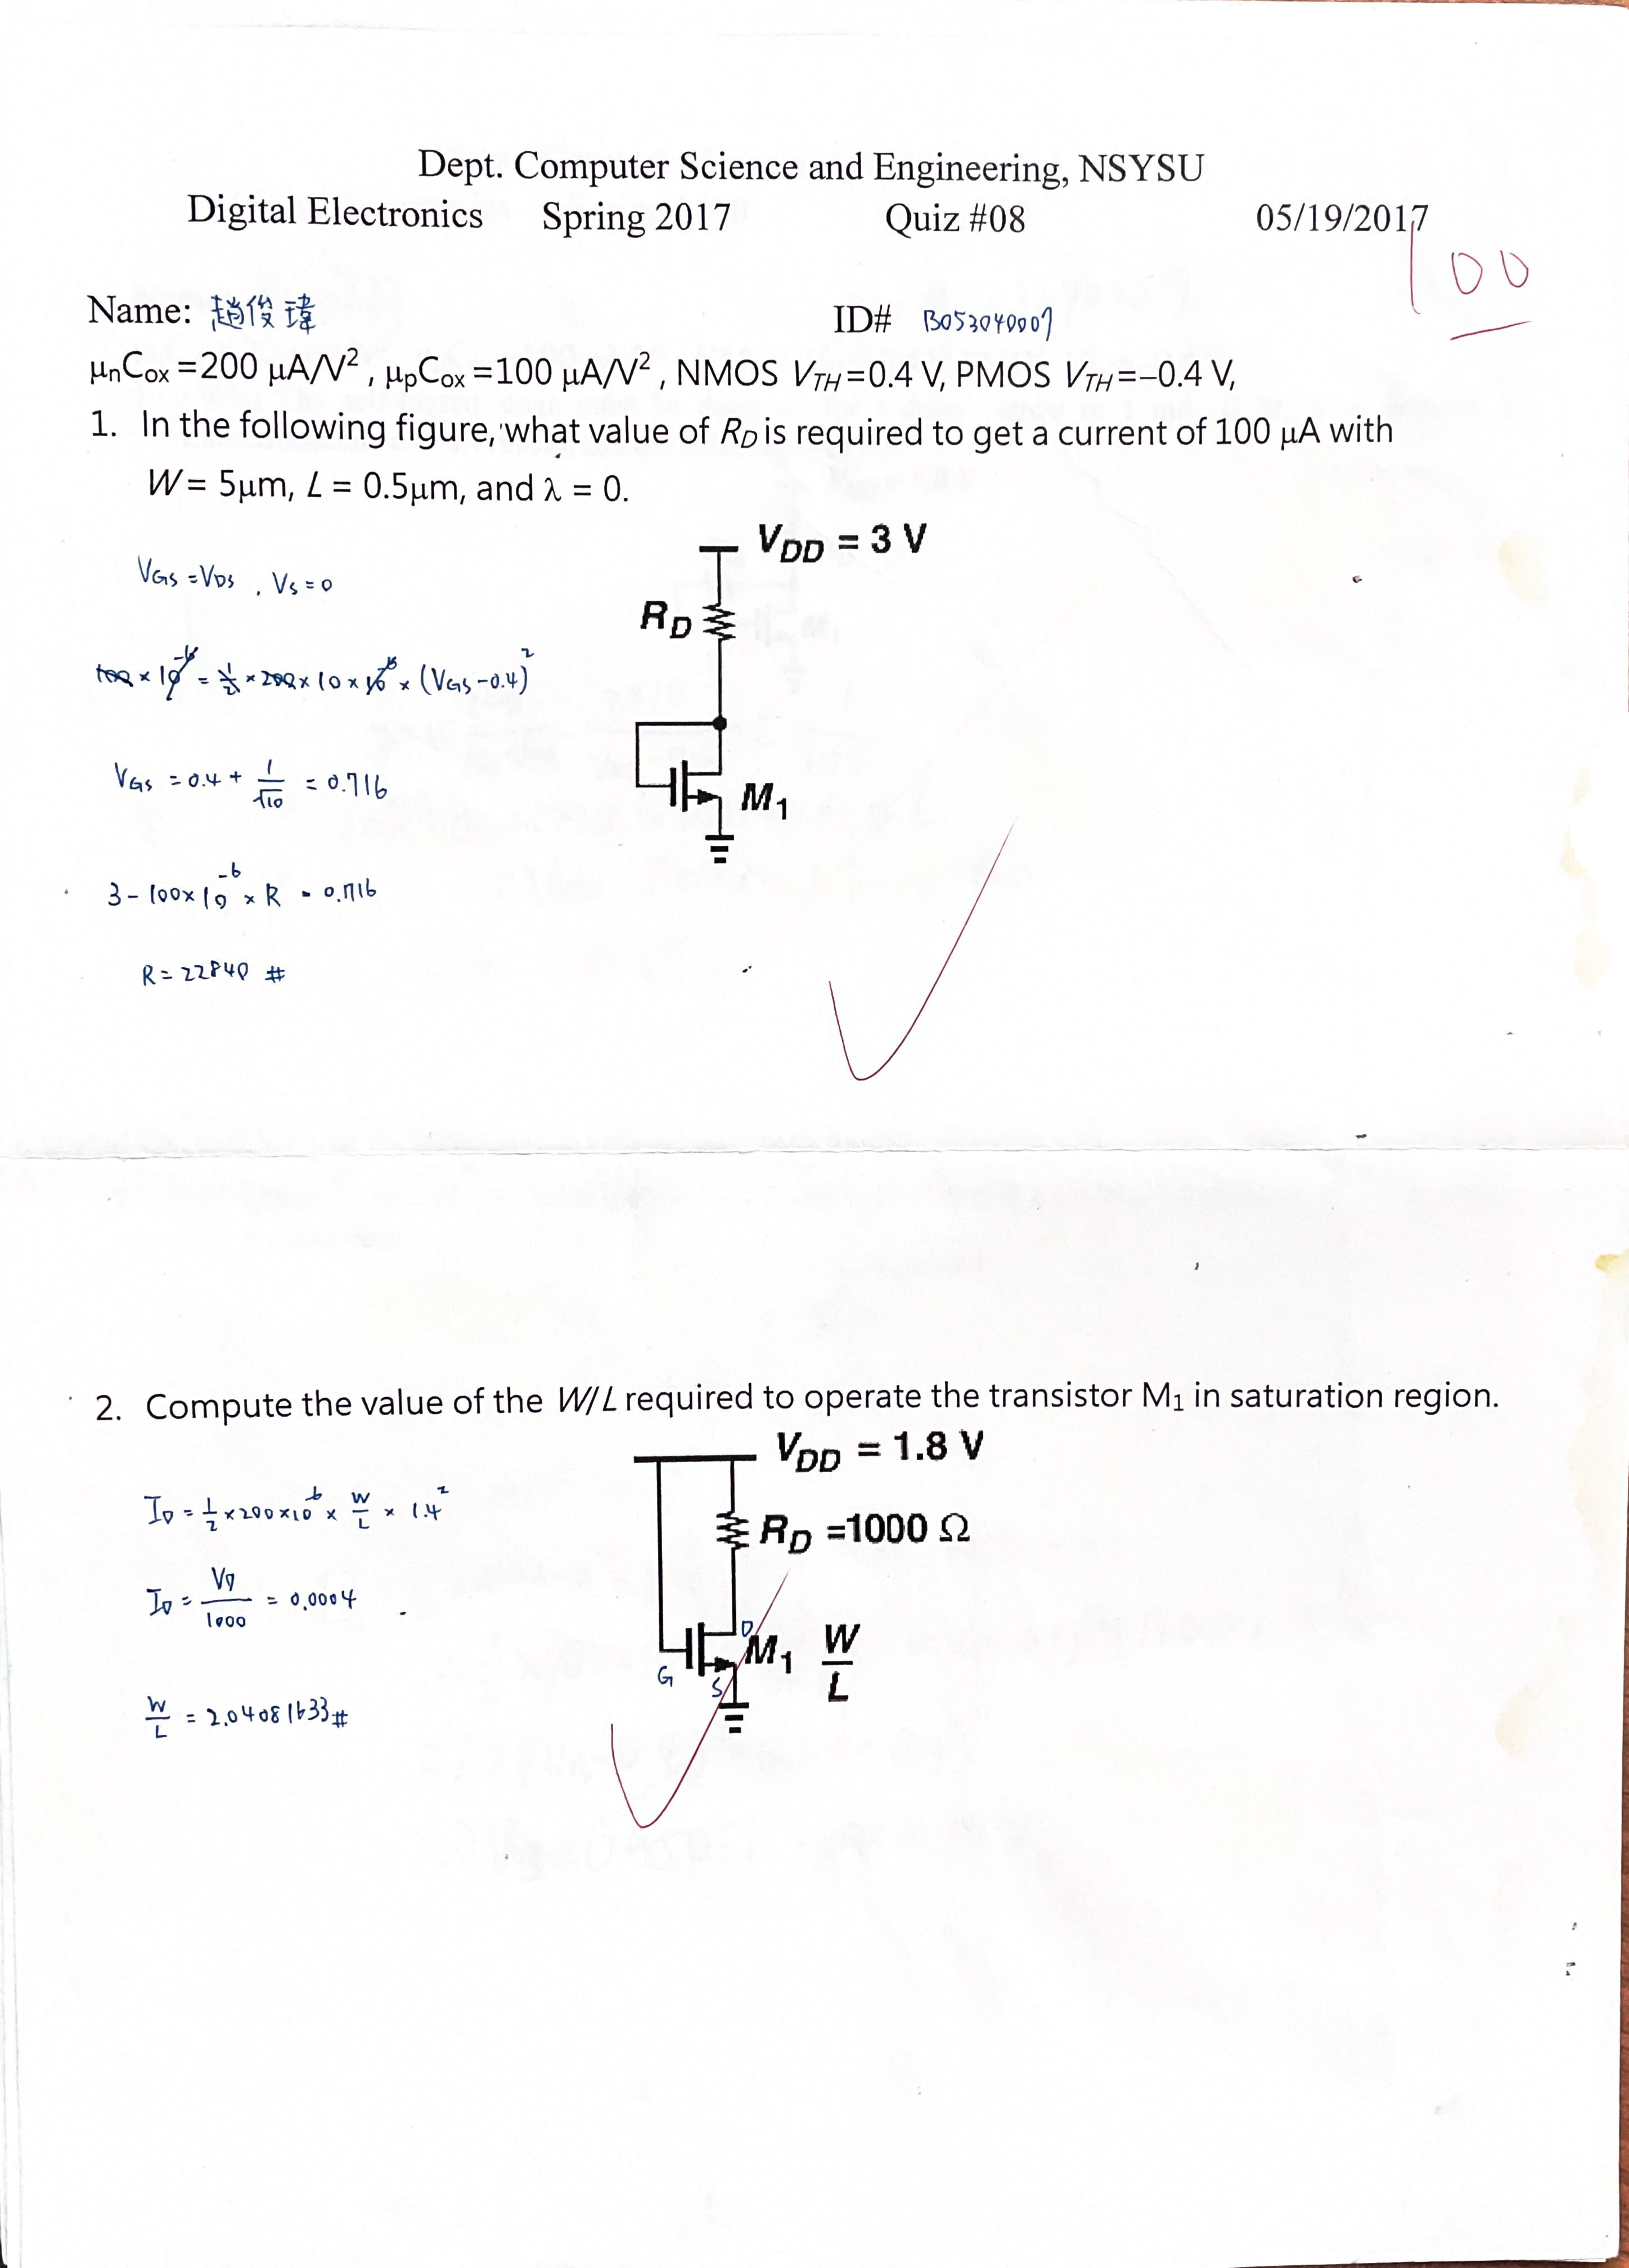 Dept. Computer Science and Engineering, NSYSU
Digital Electronics Spring 2017 Quiz #08 05/19/2017
100
Name: 趙俊瑋 ID# B053040009
μnCox =200 μA/V², μpCox =100 μA/V², NMOS VTH=0.4 V, PMOS VTH=−0.4 V,
1. In the following figure, what value of RD is required to get a current of 100 μA with
W= 5μm, L = 0.5μm, and λ = 0.
VDD = 3 V
VGS = VDS , VS = 0
RD
100 × 10⁻⁶ = 1/2 × 200 × 10 × 10⁻⁶ × (VGS - 0.4)²
VGS = 0.4 + 1/√10 = 0.716
M1
3 - 100 × 10⁻⁶ × R = 0.716
R = 22840 #
2. Compute the value of the W/L required to operate the transistor M1 in saturation region.
VDD = 1.8 V
ID = 1/2 × 200 × 10⁻⁶ × W/L × 1.4²
RD =1000 Ω
ID = /1000 = 0.0004
D
M1 W/L
G
S
W/L = 2.04081633 #